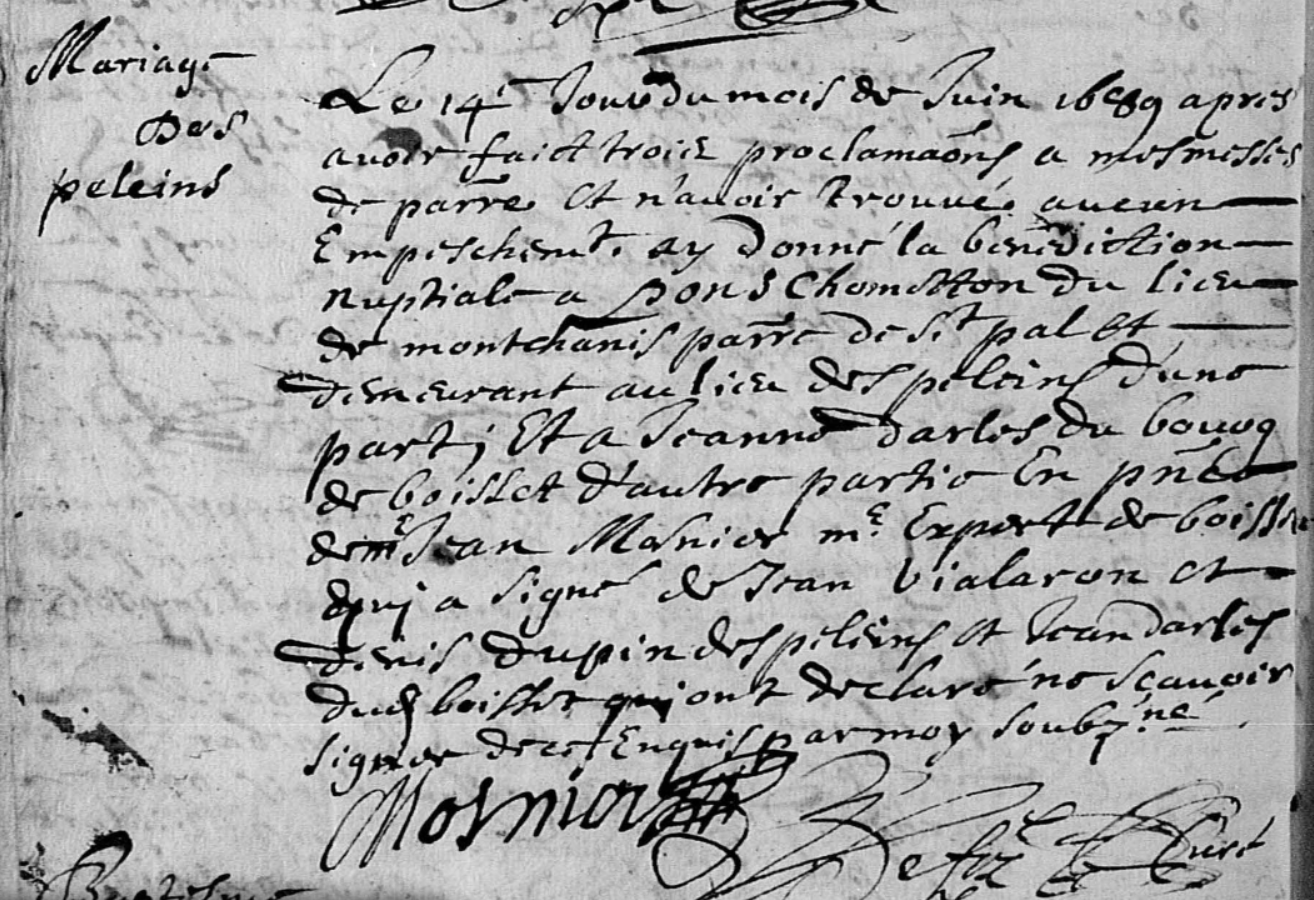 Mariage
Des
peleins
Le 14e Jour du mois de Juin 1689 apres
avoir faict trois proclamaõns a mesmesses
de parr̃e et n'avoir trouvé aucun
Empeschemt. ay donné la benediction
nuptiale a pons Chometton du lieu
de montchanis parr̃e de St pal et
demeurant au lieu des peleins d'une
part; Et a Jeanne darles du bourg
de boisset d'autre partie En pñce
de mE Jean Mosnier mE. Expert de boisset
qui a signé de Jean Vialaron et
denis dupin des peleins et Jean darles
dud boisset qui ont declaré ne scavoir
signer de ce Enquis par moy soubz.né
Mosnier
Curé